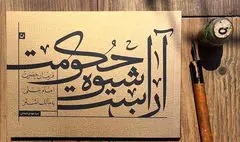 آراست
شیوه
حکومت
فرمان حضرت
امام علی
به مالک اشتر